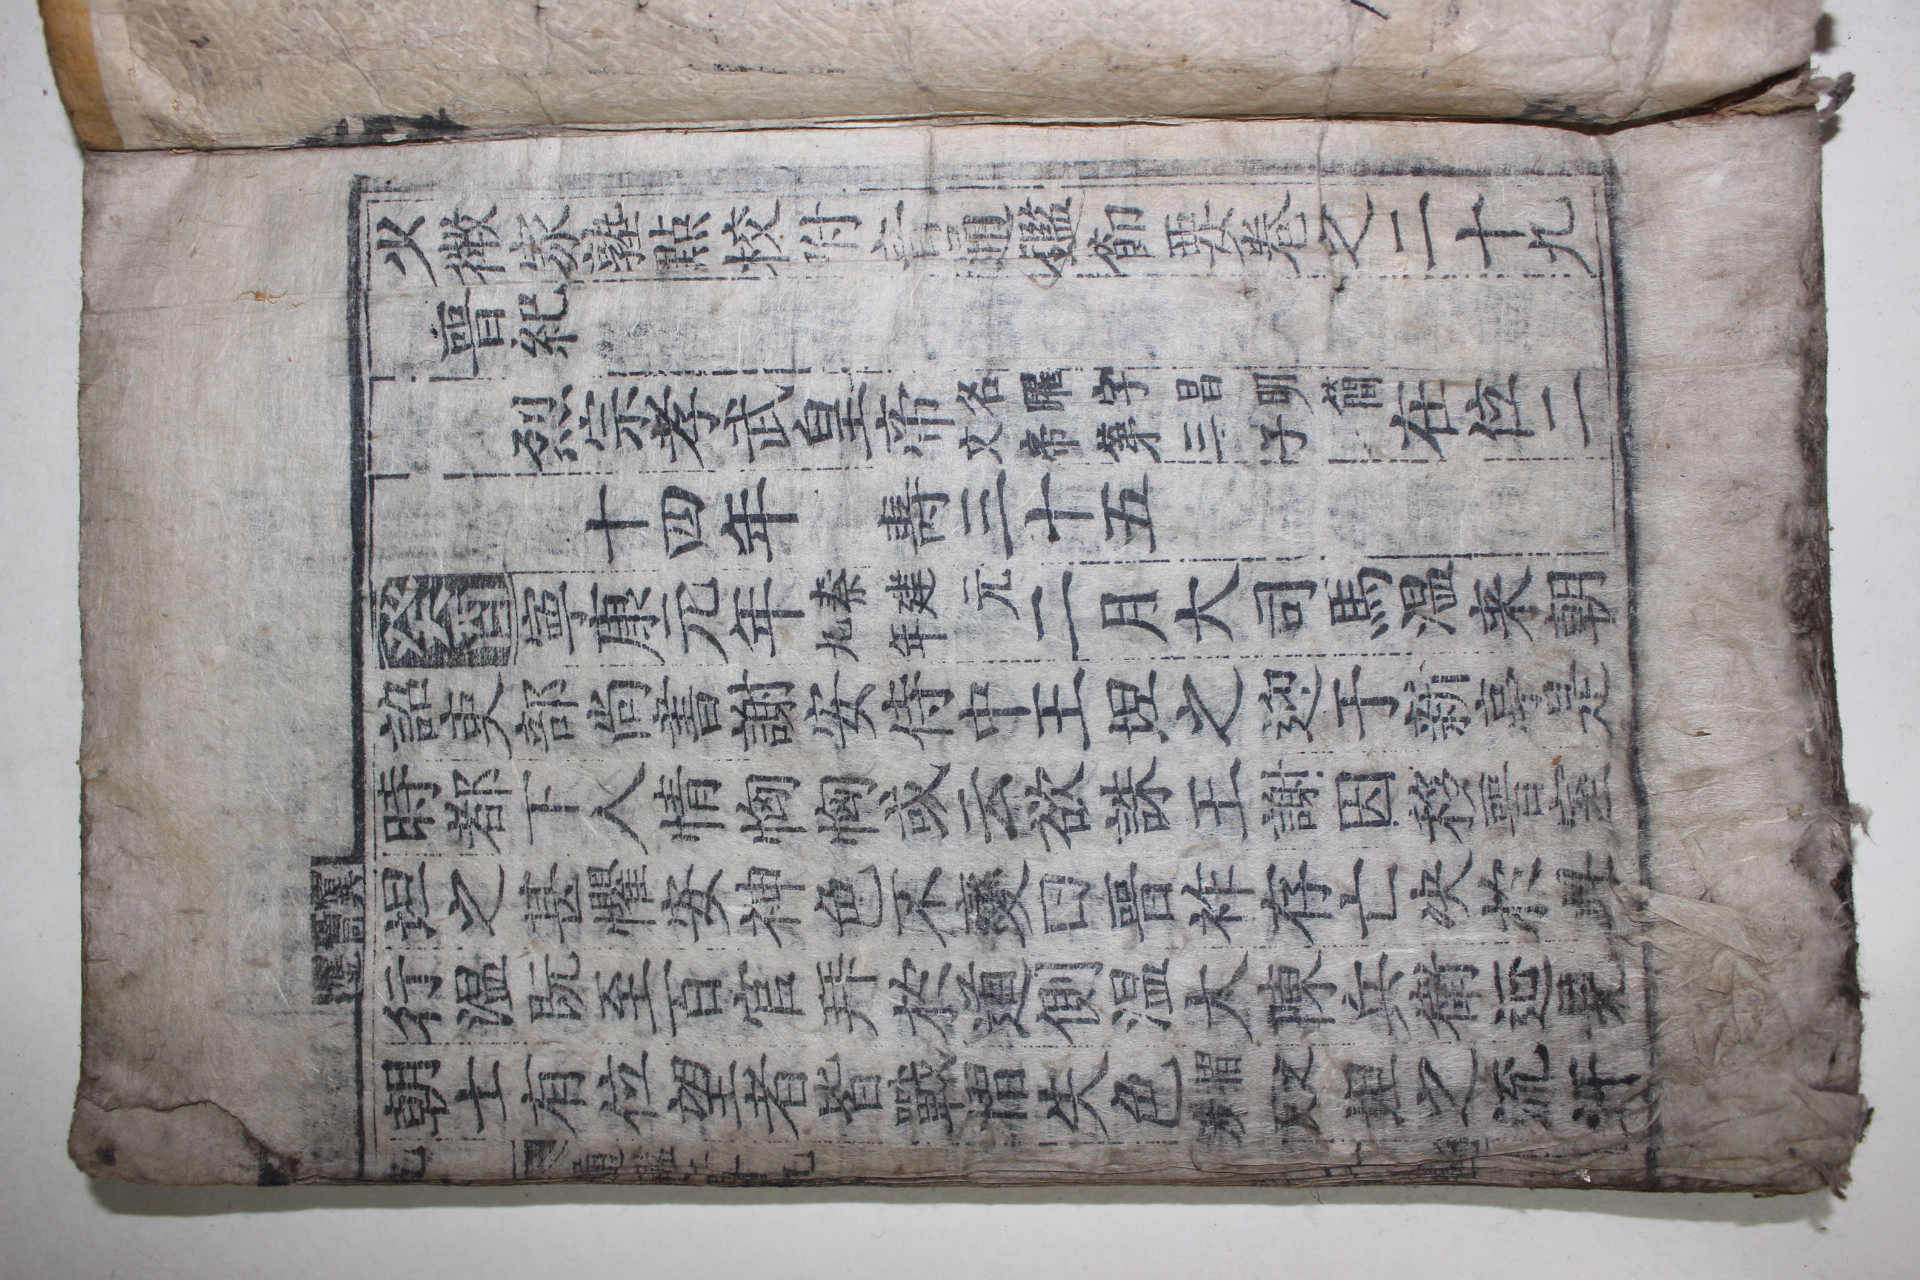 少微家塾點校附音通鑑節要卷之二十九
晉紀
烈宗孝武皇帝 名曜字昌明簡文帝第三子 在位二
十四年 壽三十五
癸酉 寧康元年 秦建元九年 二月大司馬温来朝
詔吏部尚書謝安侍中王坦之迎于新亭是
時都下人情恟恟或云欲誅王謝因移晉室
坦之甚懼安神色不變曰晉祚存亡决於此
行温旣至百官拜於道側温大陳兵衛延見
朝士有位望者皆戰慴失色 慴 坦之流汗
孝武